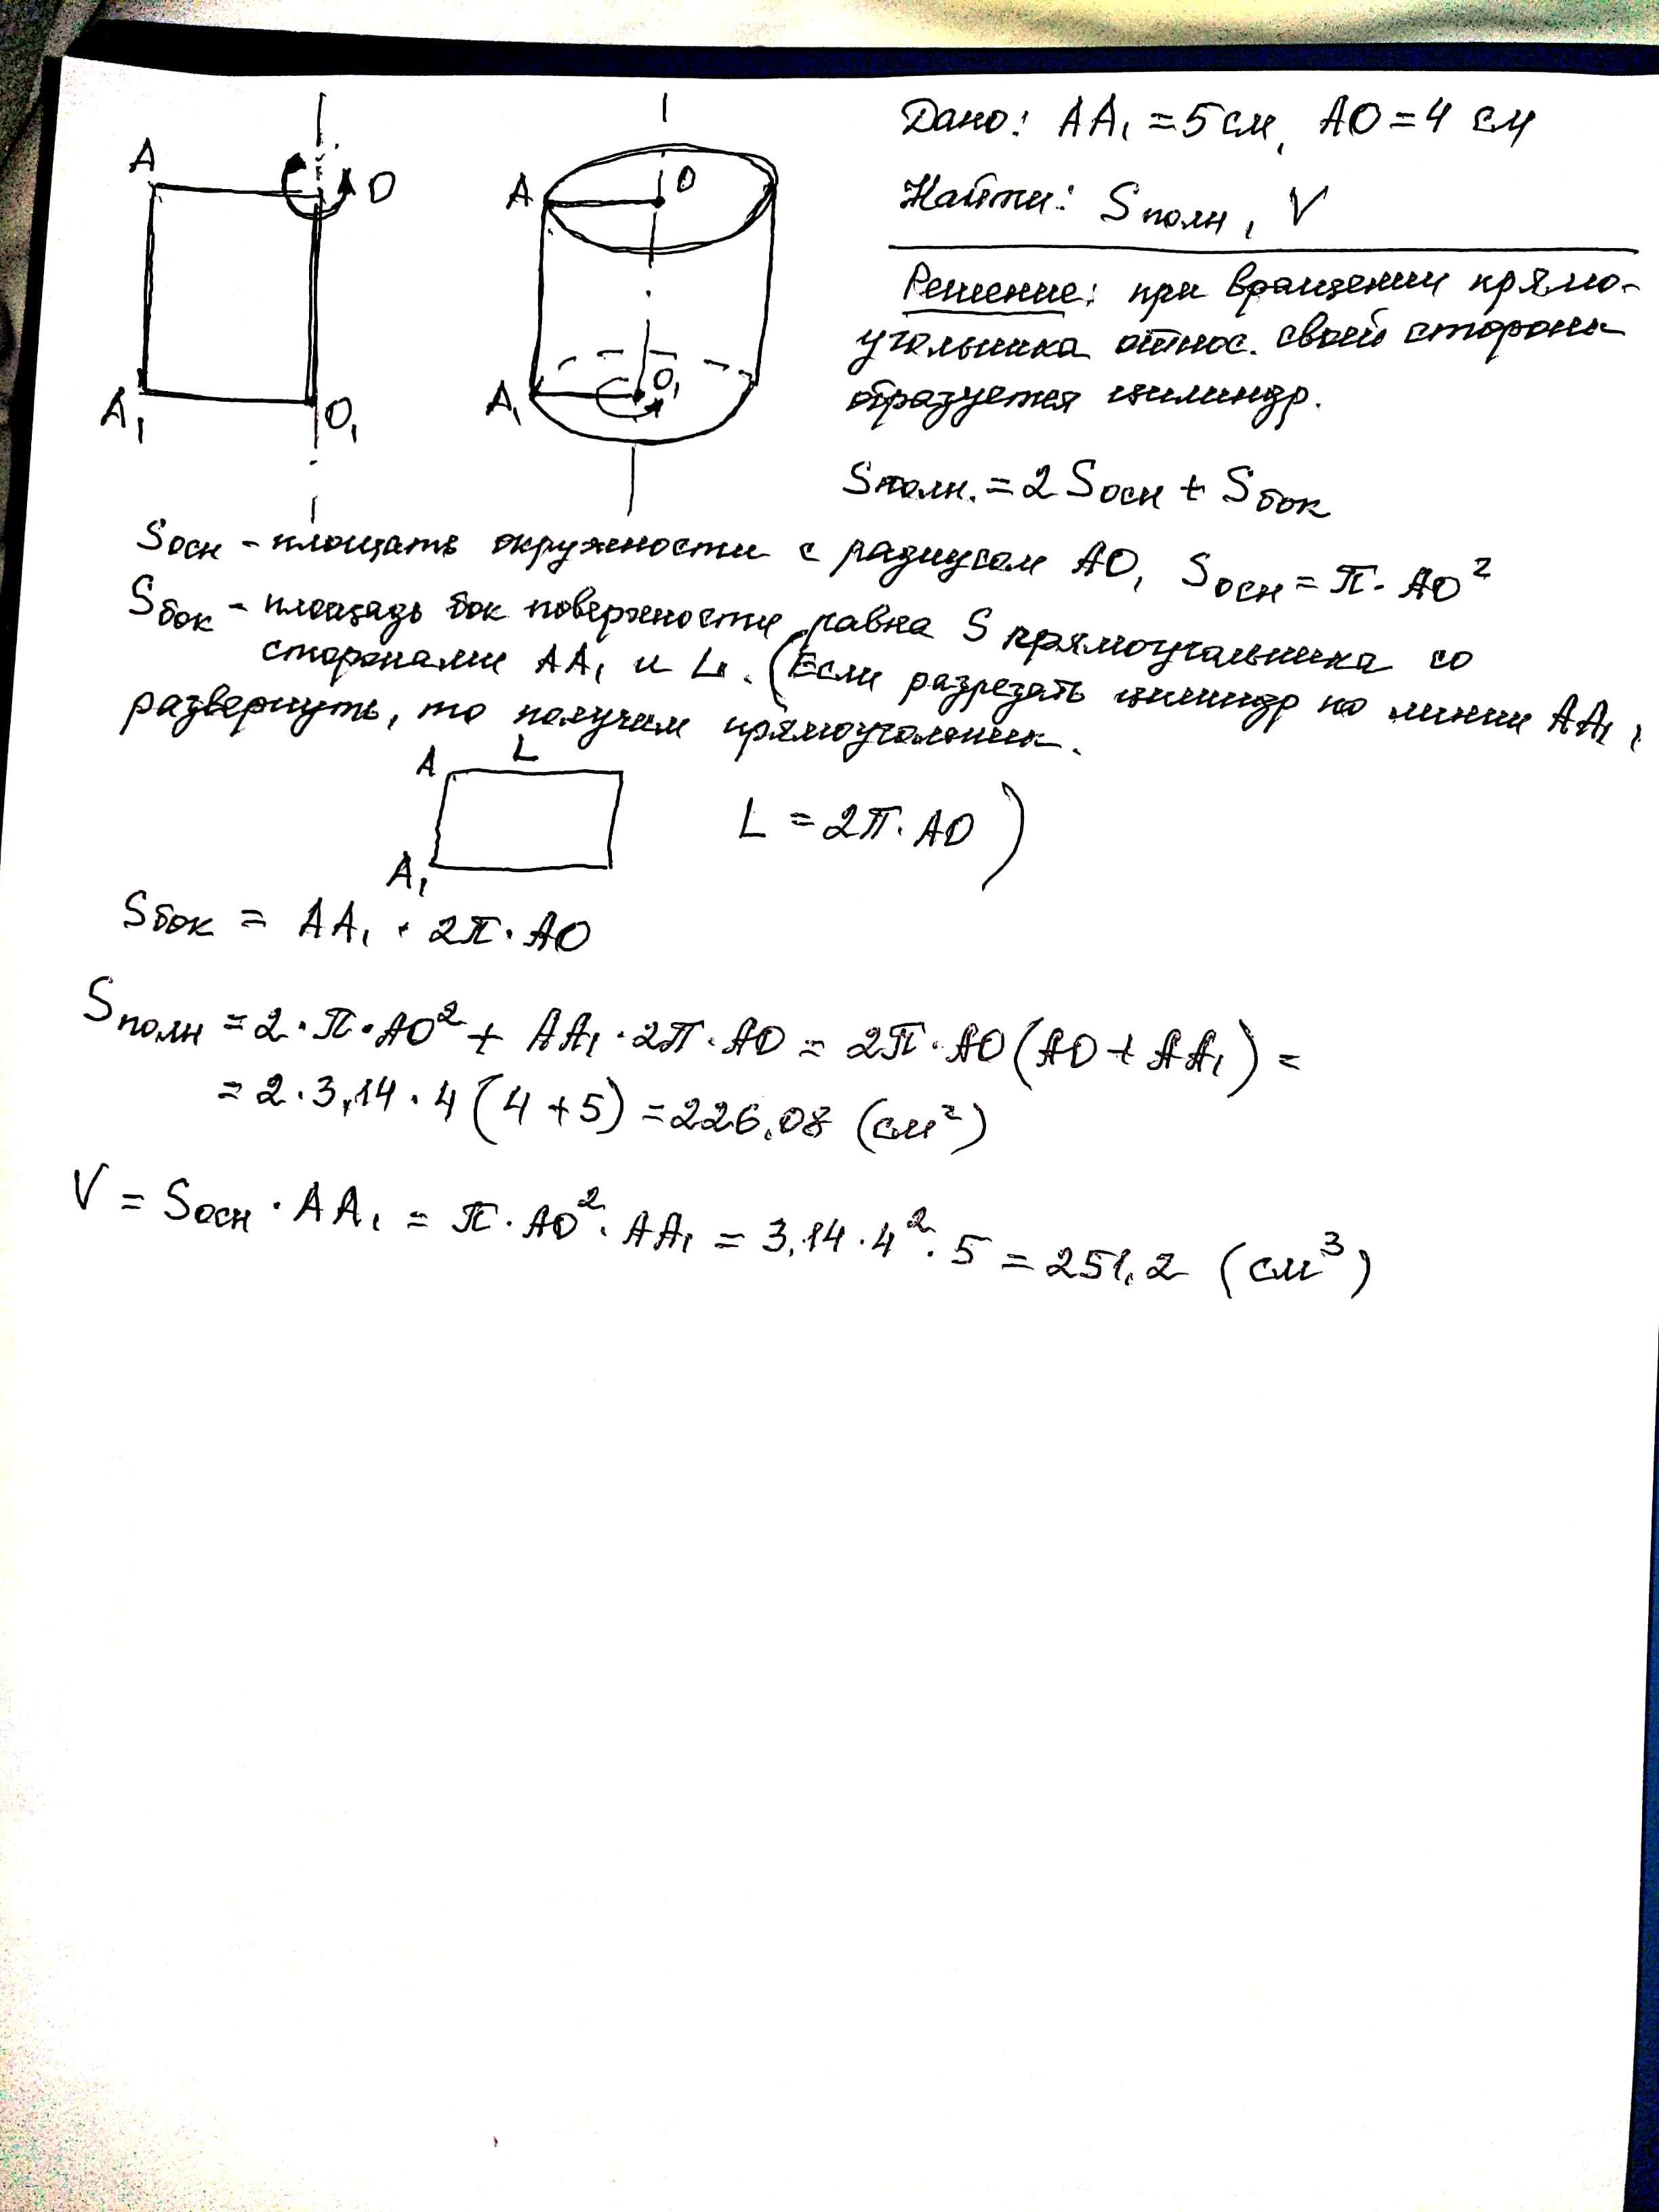 A
O
A₁
O₁
A
O
A₁
O₁
Дано: AA₁ = 5 см, AO = 4 см
Найти: Sполн, V
Решение: при вращении прямо-
угольника относ. своей стороны
образуется цилиндр.
Sполн. = 2 Sосн + Sбок
Sосн - площать окружности с радиусом AO, Sосн = π · AO²
Sбок - площадь бок поверхности равна S прямоугольника со
сторонами AA₁ и L. (Если разрезать цилиндр по линии AA₁,
развернуть, то получим прямоугольник.
A
L
A₁
L = 2π · AO )
Sбок = AA₁ · 2π · AO
Sполн = 2 · π · AO² + AA₁ · 2π · AO = 2π · AO (AO + AA₁) =
= 2 · 3,14 · 4 (4 + 5) = 226,08 (см²)
V = Sосн · AA₁ = π · AO² · AA₁ = 3,14 · 4² · 5 = 251,2 (см³)